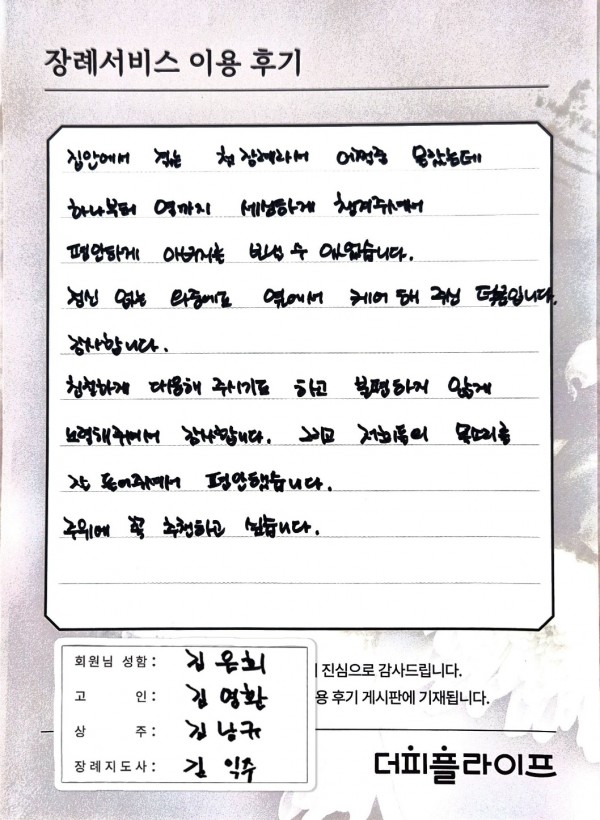 장례서비스 이용 후기
집안에서 겪는 첫 장례라서 어쩔줄 몰랐는데
하나부터 열까지 세심하게 챙겨주셔서
편안하게 아버지를 보낼 수 있었습니다.
정신 없는 와중에도 옆에서 케어 해 주신 덕분입니다.
감사합니다.
친절하게 대응해 주시기도 하고 불편하지 않게
노력해주셔서 감사합니다. 그리고 저희들의 목소리를
잘 들어주셔서 편안했습니다.
주위에 꼭 추천하고 싶습니다.
진심으로 감사드립니다.
용 후기 게시판에 기재됩니다.
회원님 성함 : 김은희
고 인 : 김영환
상 주 : 김남규
장례지도사 : 김익주
더피플라이프